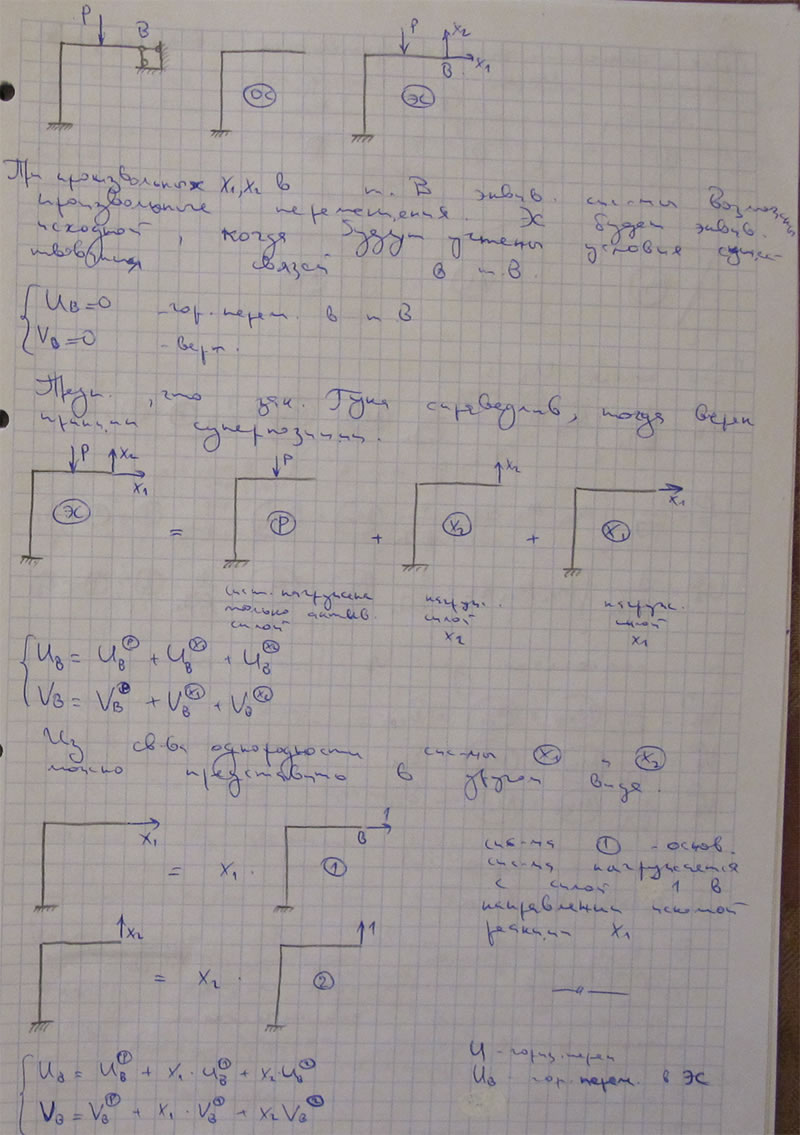 P B
ОС
P X₂ B X₁
ЭС
При произвольных X₁, X₂ в т. В эквив. сис-мы возможны
произвольные перемещения. ЭС будет эквив.
исходной, когда будут учтены условия сущес-
твования связей в т. В.
U_B = 0 - гор. перем. в т В
V_B = 0 - верт.
что зак. Гука справедлив, тогда верен
принцип суперпозиции.
P X₂ X₁ P X₂ X₁
ЭС = P + X₂ + X₁
сист. нагружена нагруж. нагруж.
только актив. силой силой
силой X₂ X₁
U_B = U_B^Ⓟ + U_B^(X₁) + U_B^(X₂)
V_B = V_B^Ⓟ + V_B^(X₁) + V_B^(X₂)
Из св-ва однородности сис-мы X₁ и X₂
можно представить в другом виде.
X₁ = X₁ · 1 B ①
сис-ма ① - основ.
сис-ма нагружается
с силой 1 в
направлении искомой
реакции X₁
X₂ = X₂ · 1 ②
— " —
U_B = U_B^Ⓟ + X₁ · U_B^① + X₂ · U_B^①
V_B = V_B^Ⓟ + X₁ · V_B^① + X₂ V_B^②
U - гориз. перем
U_B - гор. перем. в ЭС